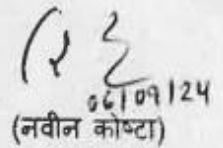 06/09/24
(नवीन कोष्टा)